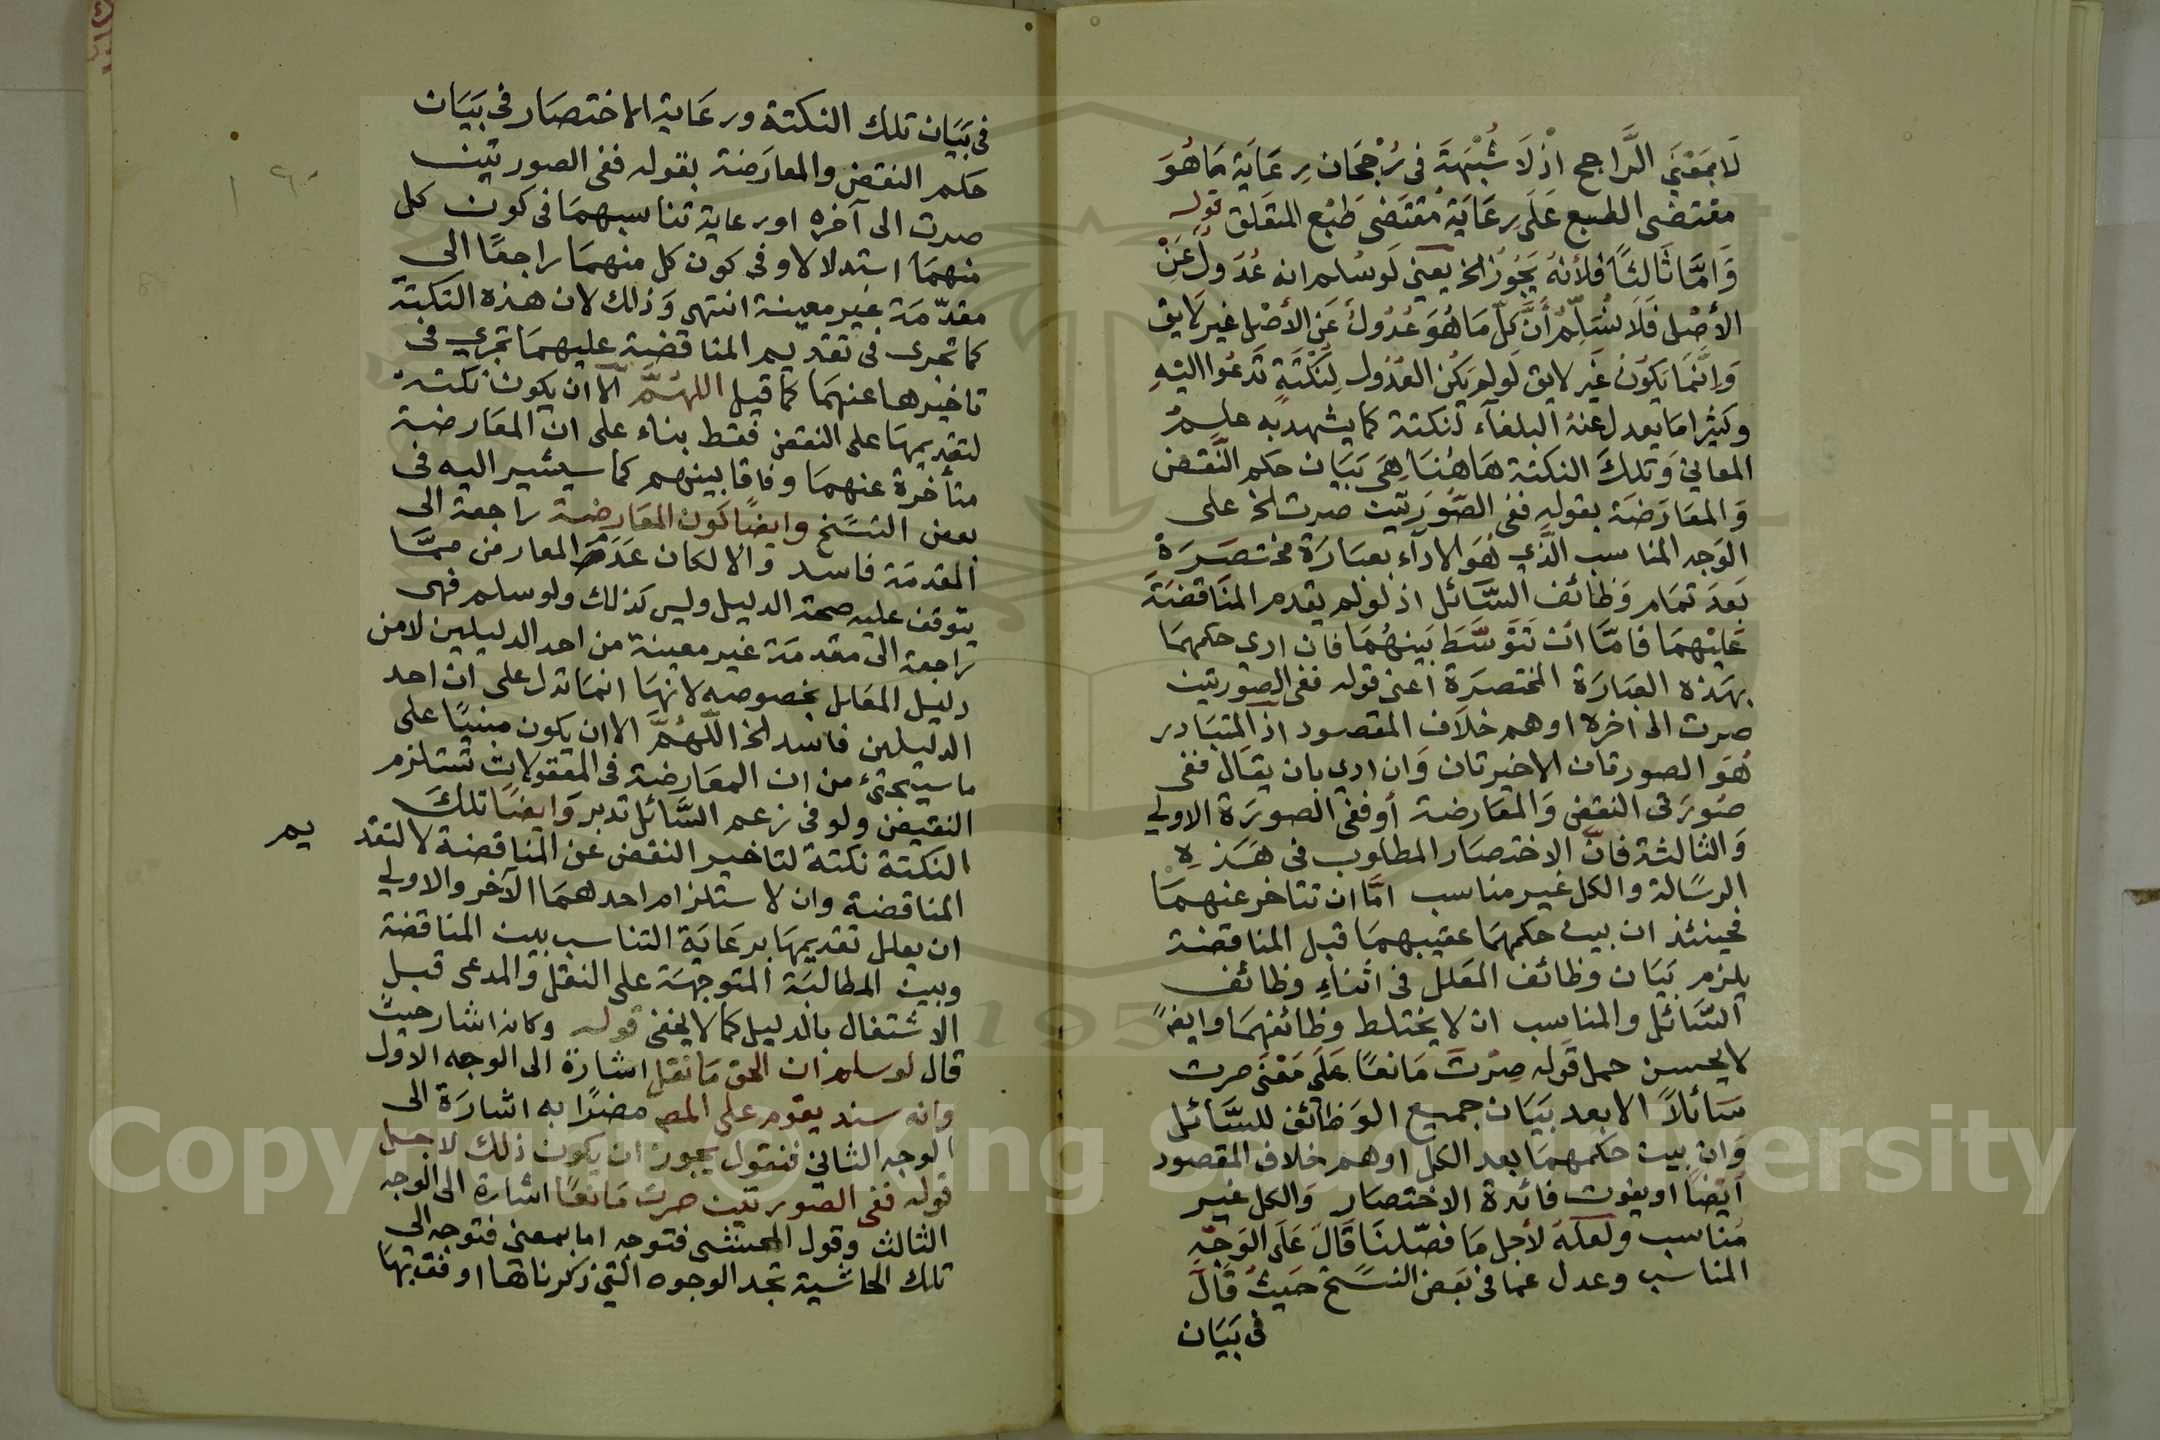 لَا بمَعْنَي الرَّاجح اذْ لَا شُبْهَةَ في رُجْحَان رِعَايَة مَا هُوَ
مقتضى الطبع عَلَى رِعَايَة مُقتَضى طَبْع المتعَلق قوله
وَامَّا ثَالثًا فلأنهُ يَجُوز الخ يعني لَو سُلم انه عُدُولٌ عَنْ
الأصْل فَلَا نُسَلِّمُ أنَّ كلّ مَا هُوَ عُدُولٌ عَن الأصْل غير لايق
وَانَّمَا يَكوُن غَير لايق لَو لم يَكن العُدُول لِنكْتَةٍ تَدعُوا اليْهِ
وكثيرا مَا يعدل عنهُ البلغآء لنكتة كما يشهد به علمُ
المعاني وَتلكَ النكتة هَاهُنَا هِيَ بَيَان حكم النَّقض
وَالمعَارَضَة بقوله ففى الصّوُرَتين صرت الخ على
الوَجه المناسب الذَّي هُوَ الادآء بعبَارَة مختصَرَة
بَعدَ تمَام وَظائف السَّائل اذ لو لم يقدم المنَاقضَة
عَليْهمَا فامَّا انْ تَتَوسَّط بَينهُمَا فان ادى حكمهما
بهَذه العبَارَة المختصرَة اعنى قوله ففى الصّورتين
صرت الى آخره اوهم خلاف المقصود اذ المتبَادر
هُوَ الصورتان الاخيرتان وَان ادي بان يقال ففى
صُورَتى النقض وَالمعَارضة أو ففى الصورَة الاولي
وَالثالثة فانّ الاختصَار المطلوب في هَذِه
الرسَالة والكل غير مناسب امَّا ان تتاخر عنهمَا
فحينئذ ان بين حكمهمَا عقيبهمَا قبل المناقضة
يلزم بَيَان وظائف المعَلل في اثناءِ وظائف
السَّائل والمناسب ان لا يختلط وظائفهمَا وايضً
لا يحسن حمل قوله صِرْتَ مَانعًا عَلَى مَعْنَى صرت
سَائلاً الا بعد بَيَان جميع الوَظائف للسَّائل
وَان بين حكمهمَا بعد الكل اوهم خلاف المقصود
ايْضًا او يفوت فائدة الاختصَار وَالكل غير
مُناسب ولعَله لأجل مَا فصّلنَا قَالَ عَلَى الوَجْهِ
المناسب وعدل عمَا في بَعض النسَخ حَيثُ قَالَ
فى بَيَان
فى بَيَان تلك النكتة ورعَاية الاختصَار في بَيَان
حَكم النقض والمعارَضة بقوله ففى الصورتين
صرت الى آخره او رعاية تناسبهمَا فى كون كل
منهمَا استدلالا وفى كون كل منهمَا راجعًا الى
مقدّمَة غير معينة انتهى وَذلك لان هذه النكتة
كما تجرى فى تقديم المناقضة عليهمَا تجري فى
تاخيرها عنهمَا كما قيل اللهُمَّ الا ان يكون نكتة
لتقديمهَا على النقض فقط بناء على ان المعَارضة
متأخرة عنهمَا وفاقا بينهم كما سيشير اليه فى
بعض النسَخ وايضًا كون المعَارضة راجعة الى
المقدمَة فاسد والا لكان عَدَم المعارض ممَّا
يتوقف عليه صحة الدليل وليس كذلك ولو سلم فهى
راجعة الى مقدمَة غير معينة من احد الدليلين لا من
دليل المعَلل بخصوصه لانهَا انمَا تدل على ان احد
الدليلين فاسد الخ اللّهُمَّ الا ان يكون مبنيًا على
ما سيَجئ من ان المعَارضة فى المعقولات تستلزم
النقيض ولو فى زعم السَّائل تدبر وَايضًا تلكَ
النكتة نكتة لتاخير النقض عن المناقضة لا لتقد يم
المناقضة وان لا ستلزام احدهمَا الآخر والاولي
ان يعلل تقديمهَا برعَايَة التناسب بين المناقضة
وبين المطالبَة المتوجهَة على النقل وَالمدعى قبل
الاشتغال بالدليل كما لا يخفى قوله وكانه اشار حيث
قال لو سلم ان الحق مَا نقل اشارة الى الوجه الاوّل
وانه سند يقوم على المص مضرًا به اشارَة الى
الوجه الثاني فنقول يجوز ان يكون ذلك لاجل
قوله ففى الصورتين صرت مَانعًا اشارة الى الوجه
الثالث وقول المحشى فتوجه اما بمعنى فتوجه الى
تلك الحاشية تجد الوجوه التي ذكرناها او فقتهَا
Copyright © King Saud University
1957